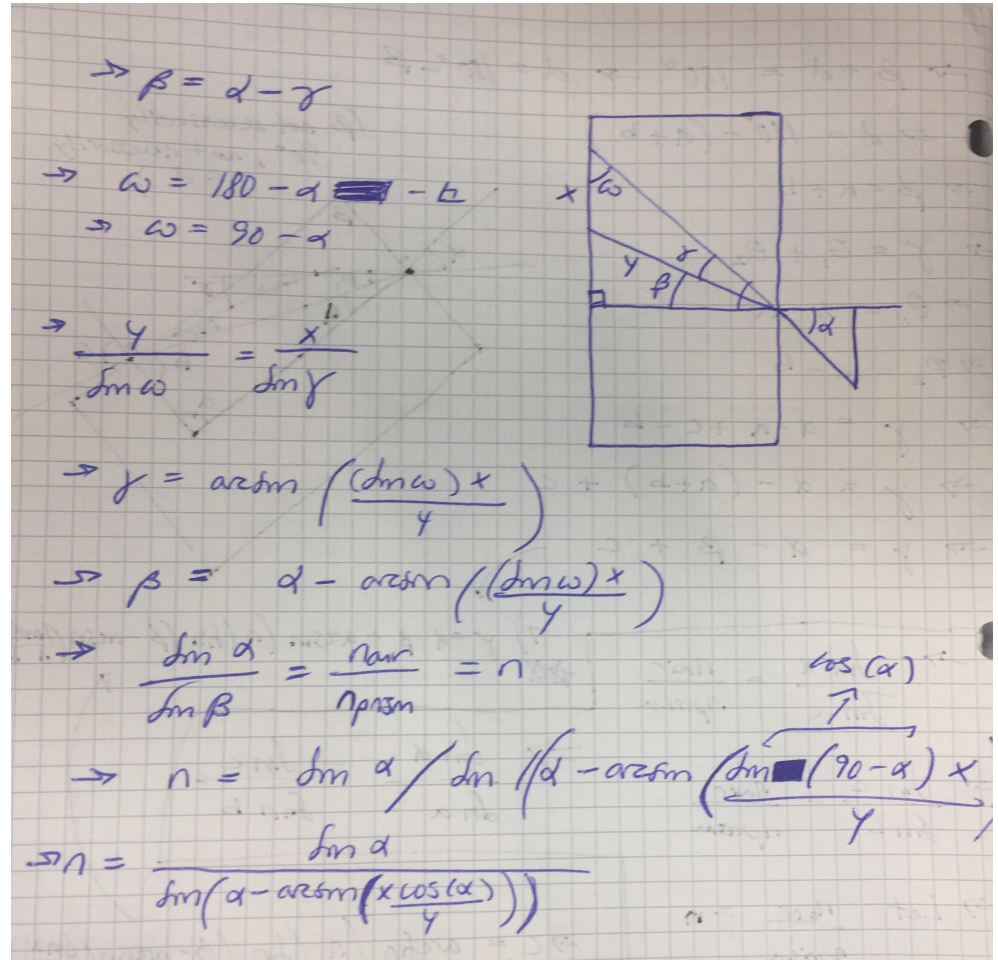 → β = α - γ
→ ω = 180 - α - b
→ ω = 90 - α
→ y / sin ω = x / sin γ
→ γ = arcsin ((sin ω) x / y)
→ β = α - arcsin ((sin ω) x / y)
→ sin α / sin β = nair / nprism = n
cos(α)
→ n = sin α / sin ((α - arcsin (sin (90 - α) x / y)
→ n = sin α / sin(α - arcsin(x cos(α) / y))
x
ω
y
γ
β
α